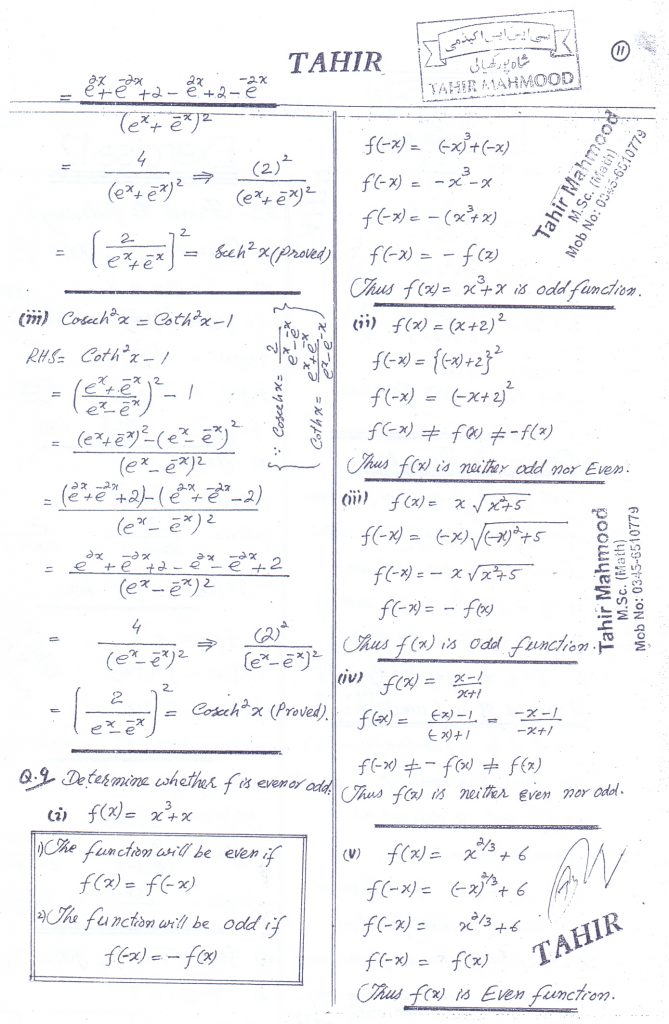 TAHIR
سی ایس ایس اکیڈمی
TAHIR MAHMOOD
11
= e^2x + e^-2x + 2 - e^2x + 2 - e^-2x / (e^x + e^-x)^2
= 4 / (e^x + e^-x)^2 ⇒ (2)^2 / (e^x + e^-x)^2
= [2 / e^x + e^-x]^2 = Sech^2x (Proved)
(iii) Cosech^2x = Coth^2x - 1
RHS = Coth^2x - 1
{∵ Cosechx = 2 / e^x - e^-x
Cothx = e^x + e^-x / e^x - e^-x}
= (e^x + e^-x / e^x - e^-x)^2 - 1
= (e^x + e^-x)^2 - (e^x - e^-x)^2 / (e^x - e^-x)^2
= (e^2x + e^-2x + 2) - (e^2x + e^-2x - 2) / (e^x - e^-x)^2
= e^2x + e^-2x + 2 - e^2x - e^-2x + 2 / (e^x - e^-x)^2
= 4 / (e^x - e^-x)^2 ⇒ (2)^2 / [e^x - e^-x)^2
= [2 / e^x - e^-x]^2 = Cosech^2x (Proved).
Q.9 Determine whether f is even or odd.
(i) f(x) = x^3 + x
1) The function will be even if
f(x) = f(-x)
2) The function will be odd if
f(-x) = - f(x)
f(-x) = (-x)^3 + (-x)
f(-x) = -x^3 - x
f(-x) = -(x^3 + x)
f(-x) = - f(x)
Thus f(x) = x^3 + x is odd function.
Tahir Mahmood
M.Sc. (Math)
Mob No: 0345-6510779
(ii) f(x) = (x+2)^2
f(-x) = {(-x)+2}^2
f(-x) = (-x+2)^2
f(-x) ≠ f(x) ≠ -f(x)
Thus f(x) is neither odd nor Even.
(iii) f(x) = x √x^2+5
f(-x) = (-x) √(-x)^2+5
f(-x) = - x √x^2+5
f(-x) = - f(x)
Thus f(x) is Odd function.
Tahir Mahmood
M.Sc. (Math)
Mob No: 0345-6510779
(iv) f(x) = x-1 / x+1
f(-x) = (-x)-1 / (-x)+1 = -x-1 / -x+1
f(-x) ≠ - f(x) ≠ f(x)
Thus f(x) is neither Even nor odd.
(v) f(x) = x^2/3 + 6
f(-x) = (-x)^2/3 + 6
f(-x) = x^2/3 + 6
f(-x) = f(x)
Thus f(x) is Even function.
TAHIR